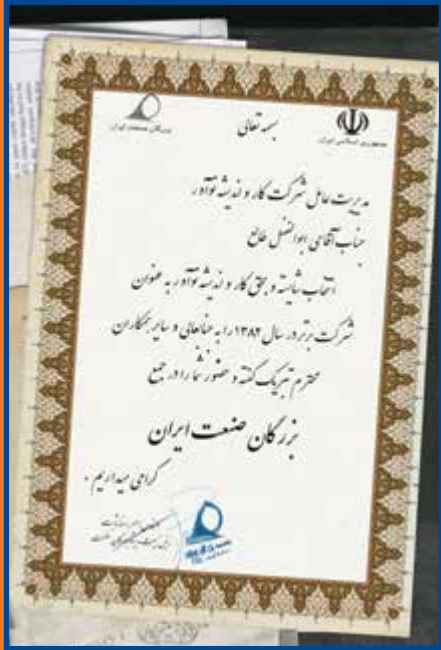 بسمه تعالی
جمهوری اسلامی ایران
بزرگان صنعت ایران
مدیریت عامل شرکت کار و اندیشه نوآور
جناب آقای ابوالفضل طالع
انتخاب شایسته و بحق کار و اندیشه نوآور به عنوان
شرکت برتر در سال ۱۳۸۲ را به جنابعالی و سایر همکاران
محترم تبریک گفته و حضور شما را در جمع
بزرگان صنعت ایران
گرامی میداریم .